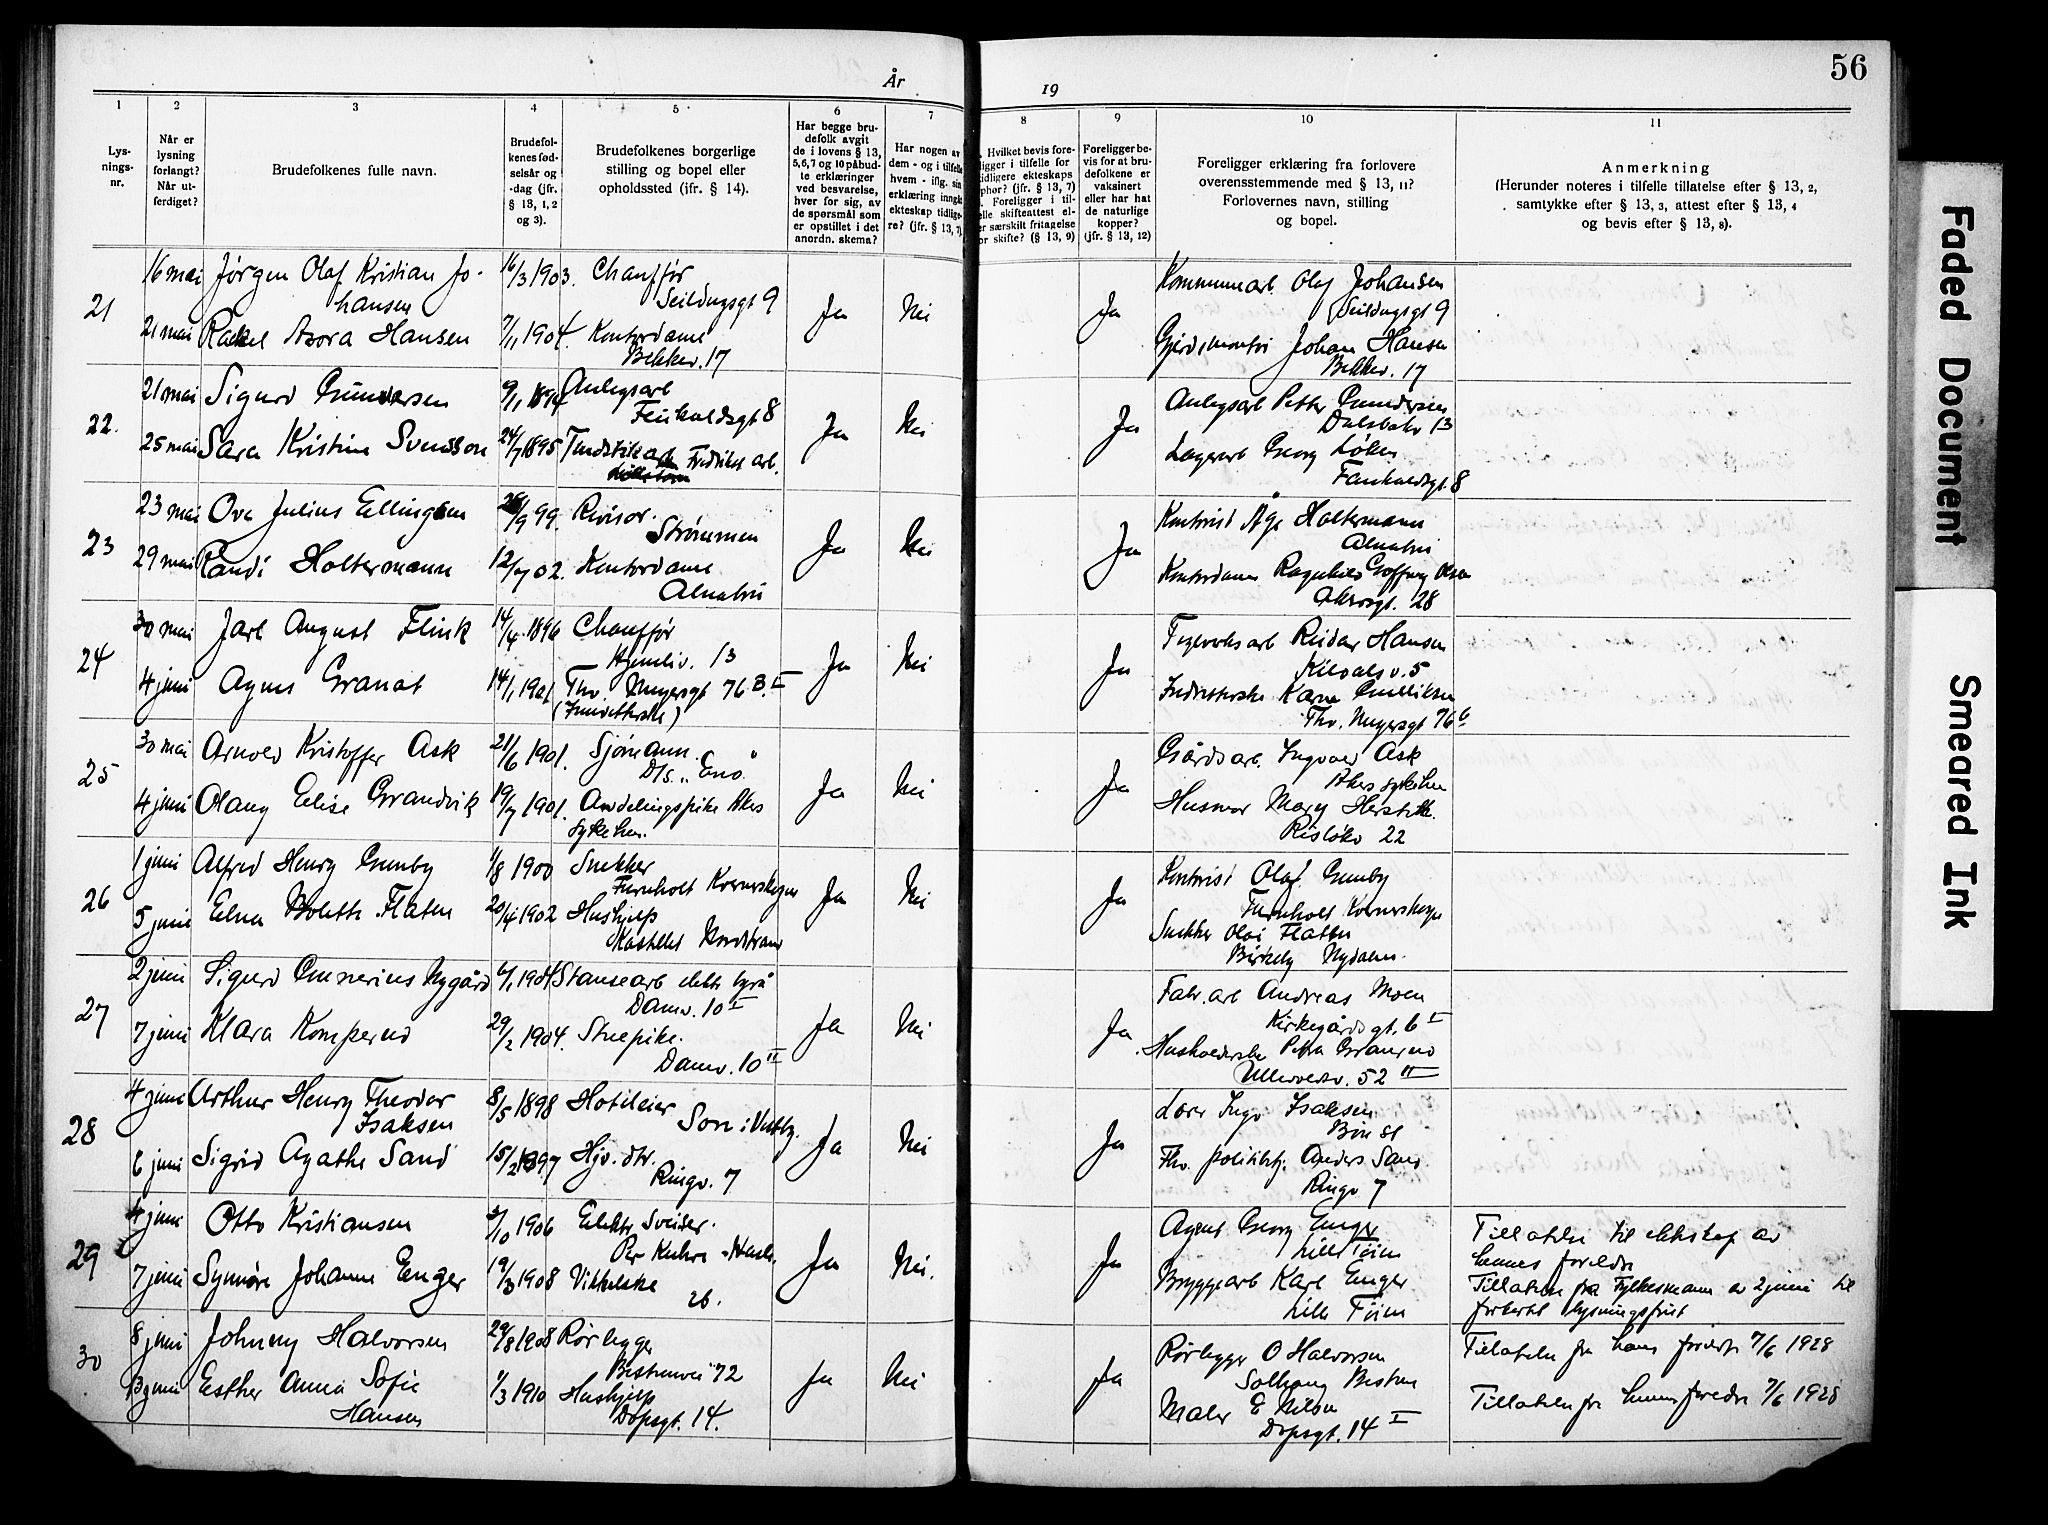 56
År
19
1
2
3
4
5
6
7
8
9
10
11
Lys-
nings-
nr.
Når er
lysning
forlangt?
Når ut-
ferdiget?
Brudefolkenes fulle navn.
Brudefol-
kenes fød-
selsår og
-dag (jfr.
§ 13, 1, 2
og 3).
Brudefolkenes borgerlige
stilling og bopel eller
opholdssted (jfr. § 14).
Har begge bru-
defolk avgit
de i lovens § 13,
5, 6, 7 og 10 påbud-
te erklæringer
ved besvarelse,
hver for sig, av
de spørsmål som
er opstillet i det
anordn. skema?
Har nogen av
dem - og i tilfelle
hvem - iflg. sin
erklæring inngå
ekteskap tidlige-
re? (jfr. § 13, 7)
Hvilket bevis fore-
ligger i tilfelle for
tidligere ekteskaps
ophør? (jfr. § 13, 7)
Foreligger i til-
felle skifteattest el-
er særskilt fritagelse
or skifte? (§ 13, 9)
Foreligger be-
vis for at bru-
defolkene er
vaksinert
eller har hat
de naturlige
kopper?
(jfr. § 13, 12)
Foreligger erklæring fra forlovere
overensstemmende med § 13, 11?
Forlovernes navn, stilling
og bopel.
Anmerkning
(Herunder noteres i tilfelle tillatelse efter § 13, 2,
samtykke efter § 13, 3, attest efter § 13, 4
og bevis efter § 13, 8).
21
16 mai
Jørgen Olaf Kristian Jo-
hansen
16/3 1903.
Chauffør
Seildugsgt 9
Ja
Nei
Ja
Kommunearb. Olaf Johansen
Seildugsgt 9
21 mai
Rakel Asora Hansen
7/1 1904.
Kontordame
Bekkev. 17
Johan Hansen
Bekkev. 17
22.
21 mai
Sigurd Gundersen
Anlegsarb
8
Ja
Nei
Ja
Anlegsarb Petter Gundersen
13
25 mai
Sara Kristine Svendson
24/7 1895
Fredrikst arb.
Lagerarb Georg Løken
8
23
23 mai
Ove Julius Ellingsen
/9 99.
Revisor.
Strømmen
Ja
Nei
Ja
Kontorist Åge Holtermann
Alnabru
29 mai
Randi Holtermann
12/7 02.
Kontordame
Alnabru
Kontordame Ragnhild Olsen
Akersgt. 28
24
30 mai
Jarl August Flink
14/4 1896
Chauffør
Hjemliv. 13
Ja
Nei
Ja
Teglverksarb Reidar Hansen
Kilvals v. 5
4 juni
Agnes Granat
14/1 1901
Thv. Meyersgt 76 B. I
Karen
Thv. Meyersgt 76 b
25
30 mai
Arnold Kristoffer Ask
21/6 1901.
Sjømann.
D/s. „Eno"
Ja
Nei
Ja
Gårdsarb. Ingvald Ask
Akers sykehus
4 juni
Olaug Elise Grandvik
19/7 1901.
Avdelingspike Akers
sykehus.
Husmor Mary
Risløkv 22
26
1 juni
Alfred Henry Grunby
1/8 1900
Snekker
Furuholt
Ja
Nei
Ja
Kontorist Olaf Grunby
Furuholt
5 juni
Elna Bolette Flaten
20/4 1902
Hushjelp
Kastellet Nordstrand
Snekker Olai Flaten
Birkeby Nydalen.
27
2 juni
Sigurd Gunerius Nygård
Stansearb elektr byrå
Damv. 10 I
Ja
Nei
Ja
Fabr. arb Andreas Moen
Kirkegårdsgt. 6 I
7 juni
Klara Komperud
29/2 1904.
Stuepike.
Damv. 10 II
Husholderske Petra
Ullevoldsv. 52 II
28
4 juni
Arthur Henry Theodor
Isaksen
8/5 1898
Hotileier
Son i Vestby.
Ja
Nei
Ja
Lærer Inge Isaksen
Bøn St
6 juni
Sigrid Agathe Sand
15/2 1897
Hjv. dtr.
Ringv. 7
Fhv. politibtj. Anders Sand.
Ringv 7
29
4 juni
Otto Kristiansen
/10 1906
Elektr Sveiser.
Per Kuhre
Ja
Nei.
Ja
Agent Georg Enger
Lille Tøien
Tillatelse til ekteskap av
hennes foreldre
7 juni
Synnøve Johanne Enger
19/3 1908
26.
Bryggearb Karl Enger
Lille Tøien
Tillatelse fra Fylkesmann av 2 juni til
forkortet lysningsfrist
30
8 juni
Johnny Halvorsen
29/8 1908
Rørlegger
Bestumvei 72
Ja
Nei
Ja
Rørlegger O Halvorsen
Solhaug Bestum
Tillatelse fra hans foreldre 7/6 1928
13 juni
Esther Anna Sofie
Hansen
1/3 1910
Hushjelp
Dopsgt. 14.
Maler E Nilsen
Dopsgt. 14 I
Tillatelse fra hennes foreldre 7/6 1928
Faded Document
Smeared Ink